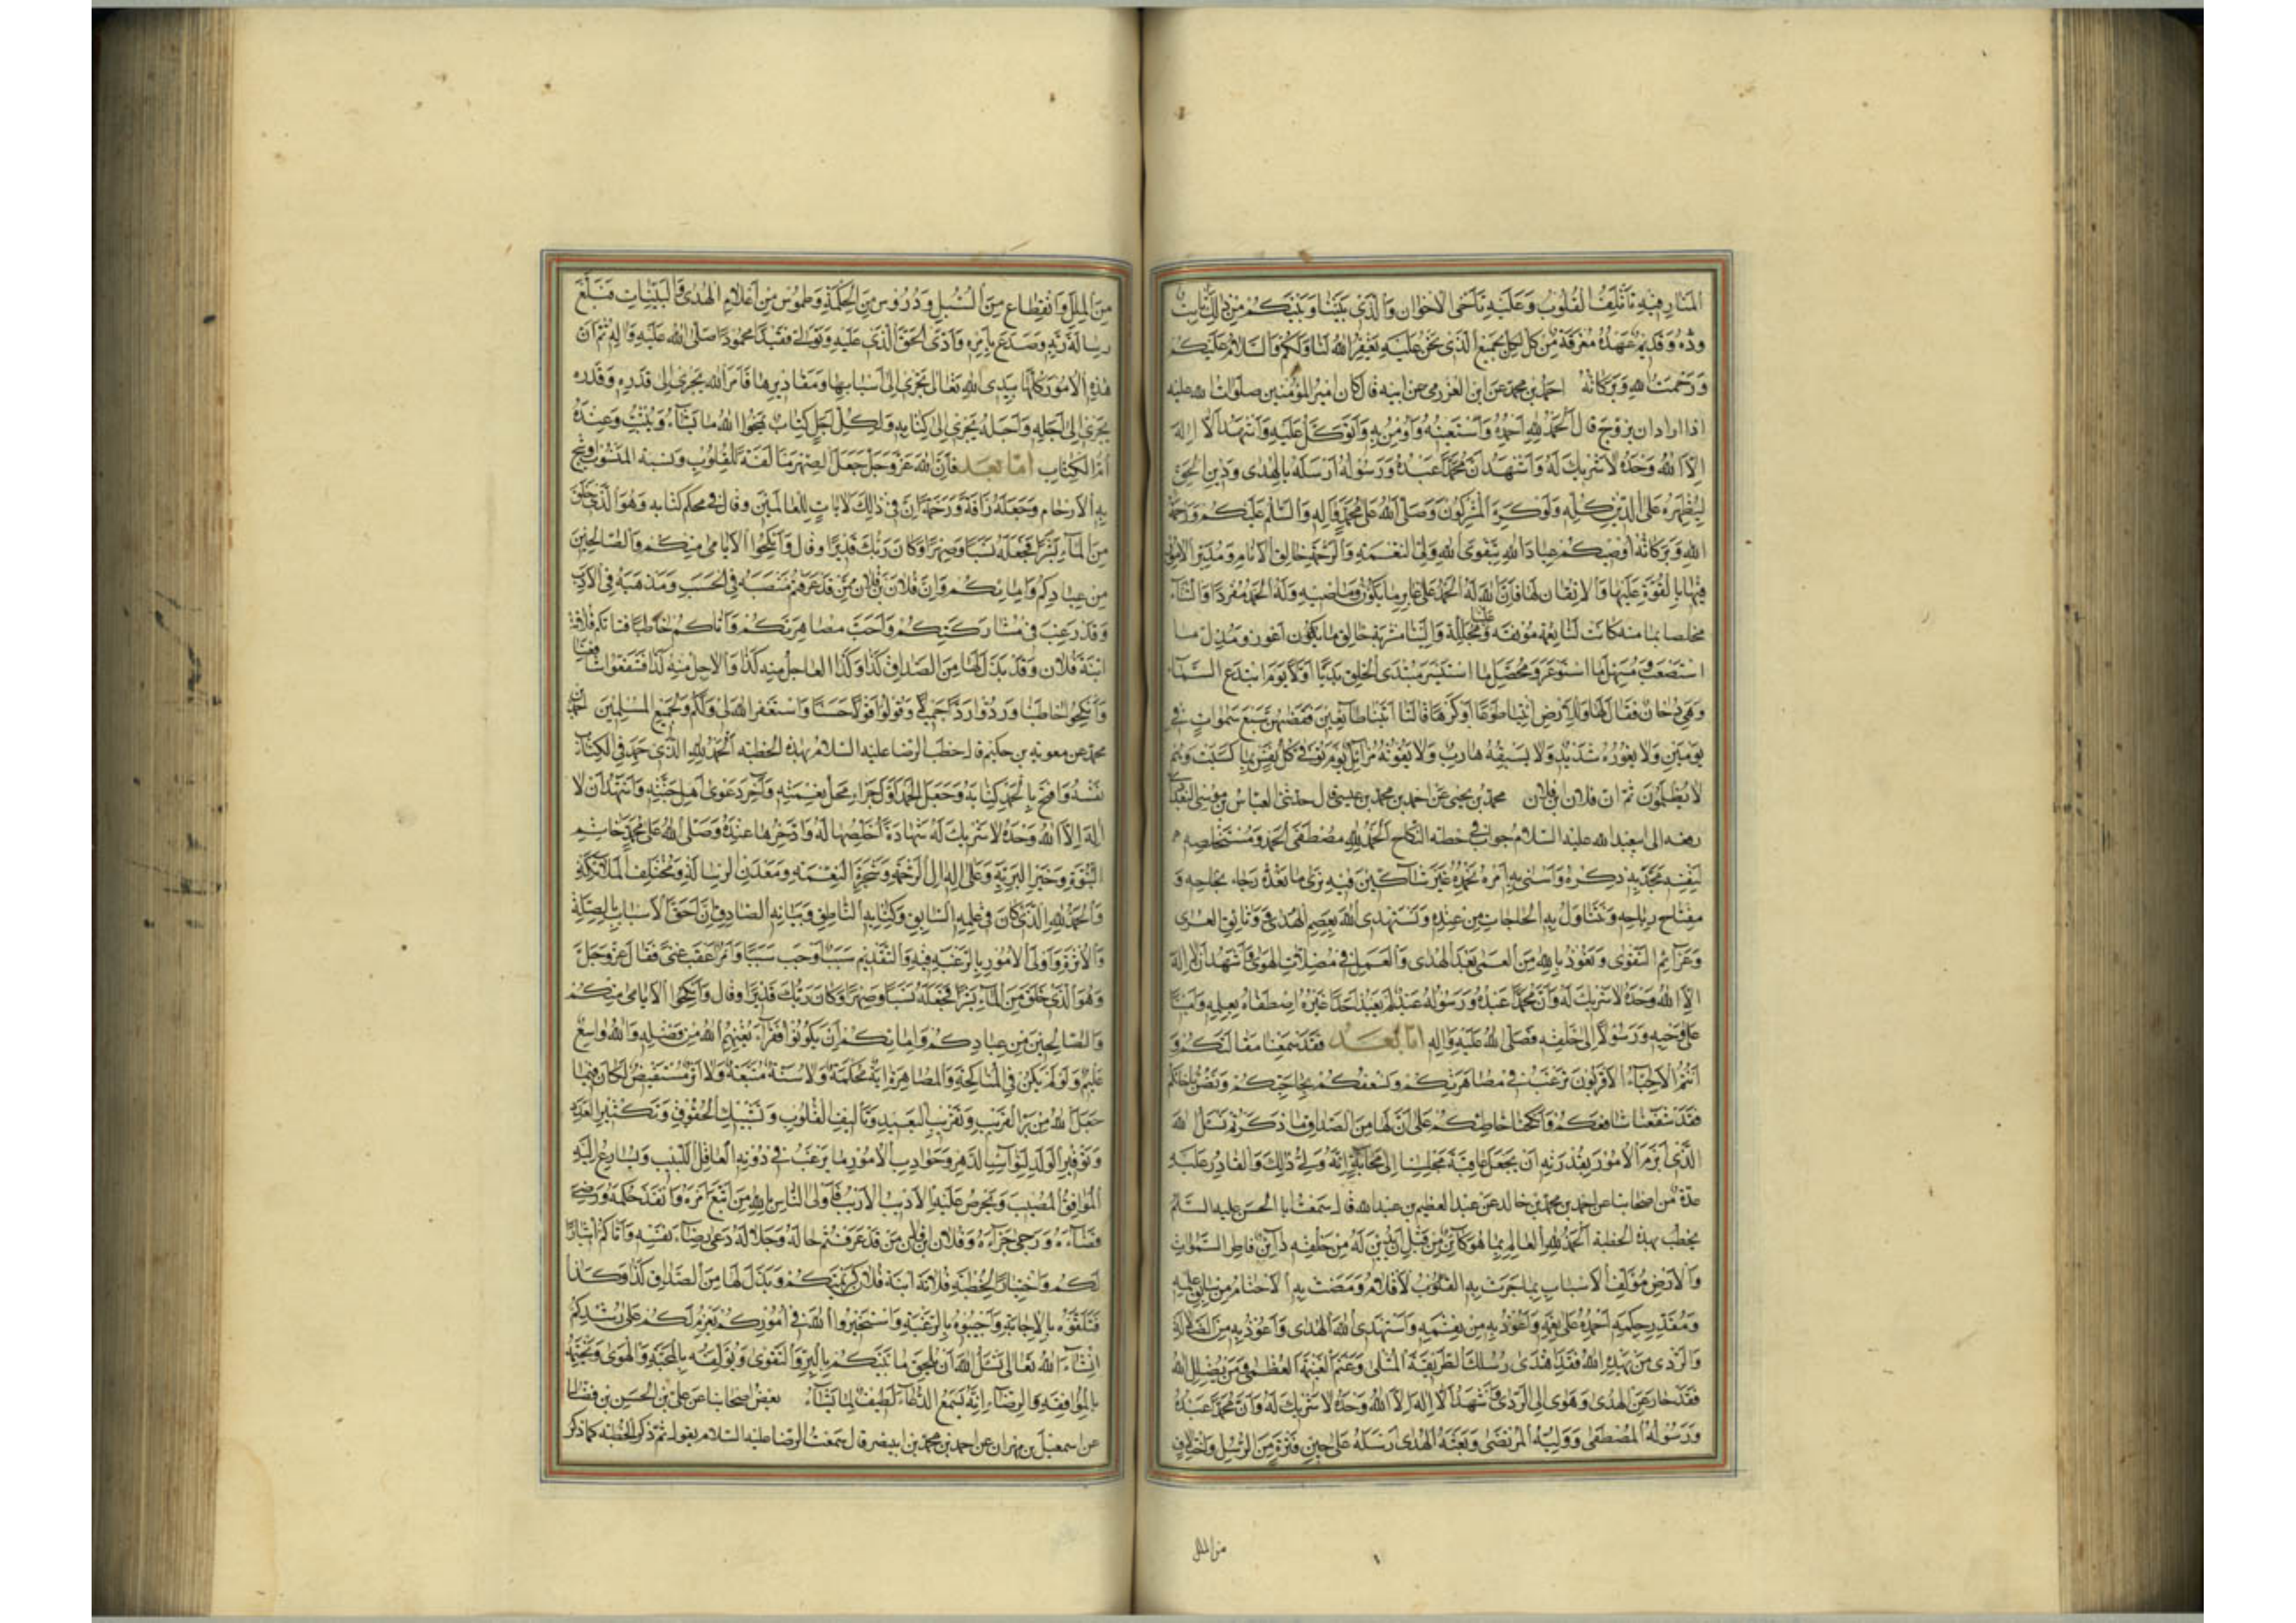 المنار فيه تأتلف القلوب وعليه تآخى الاخوان والذي بيننا وبينكم من ذلك ثابت
وده وقديم عهده معرفة من كل لكل بجميع الذي نحن عليه يغفر الله لنا ولكم والسلام عليكم
ورحمت الله وبركاته احمد بن محمد عن ابن العزرمي عن ابيه قال كان امير المؤمنين صلوات الله عليه
اذا اراد ان يزوج قال الحمد لله احمده واستعينه واومن به واتوكل عليه واشهد ان لا اله
الا الله وحده لا شريك له واشهد ان محمدا عبده ورسوله ارسله بالهدى ودين الحق
ليظهره على الدين كله ولو كره المشركون وصلى الله على محمد واله والسلم عليكم ورحمة
الله وبركاته اوصيكم عباد الله بتقوى الله ولي النعمة والرحمة خالق الانام ومدبر الامور
فيها بالقوة عليها والاتقان لها فان الله له الحمد على غابر ما يكون وماضيه وله الحمد مفردا والثناء
مخلصا بما منه كانت لنا نعمة مونقة وعلينا مجللة والينا متزينة خالق ما يكون اعوز ومذل ما
استصعب ومسهل ما استوعر ومحصل ما استيسر مبتدئ الخلق بديا اولا يوم ابتدع السماء
وهي دخان فقال لها وللارض ائتيا طوعا او كرها قالتا اتينا طائعين فقضيهن سبع سموات في
يومين ولا يعوره شديد ولا يسبقه هارب ولا يفوته مزائل يوم توفى كل نفس ما كسبت وهم
لا يظلمون ثم ان فلان ابن فلان محمد بن يحيى عن احمد بن محمد بن عيسى قال حدثني العباس بن موسى البغدادي
رفعه الى ابي عبد الله عليه السلام جواب في خطبه النكاح الحمد لله مصطفي الحمد ومستخلصه
لنفسه مجد به ذكره واسنى به امره نحمده غير شاكين فيه نرى ما نعده رجاء نجاحه و
مفتاح رباحه ونتناول به الحاجات من عنده ونستهدي الله بعصم الهدى ووثائق العرى
وعزائم التقوى ونعوذ بالله من العمى بعد الهدى والعمل في مضلات الهوى واشهد ان لا اله
الا الله وحده لا شريك له وان محمدا عبده ورسوله عبد لم يعبد احدا غيره اصطفاه بعلمه وامينا
على وحيه ورسولا الى خلقه فصلى الله عليه واله اما بعد فقد سمعنا مقالتكم و
انتم الاحياء الاقربون نرغب في مصاهرتكم ونسعفكم بحاجتكم ونضن باخائكم
فقد شفعنا شافعكم وانكحنا خاطبكم على ان لها من الصداق ما ذكرتم نسئل الله
الذي ابرم الامور بقدرته ان يجعل عاقبة مجلسنا الى محابه انه ولي ذلك والقادر عليه
عدة من اصحابنا عن احمد بن محمد بن خالد عن عبد العظيم بن عبد الله قال سمعت ابا الحسن عليه السلم
يخطب بهذه الخطبة الحمد لله العالم بما هو كائن من قبل ان يدين له من خلقه دائن فاطر السموات
والارض مؤلف الاسباب بما جرت به القلوب الاقلام ومضت به الاحتام من سابق علمه
ومقدر حكمه احمده على نعمه واعوذ به من نقمه واستهدي الله الهدى واعوذ به من الضلالة
والردى من يهده الله فقد اهتدى وسلك الطريقة المثلى وغنم الغنيمة العظمى ومن يضلل الله
فقد حار عن الهدى وهوى الى الردى واشهد ان لا اله الا الله وحده لا شريك له وان محمدا عبده
ورسوله المصطفى ووليه المرتضى وبعيثه بالهدى ارسله على حين فترة من الرسل واختلاف
من الملل
من الملل وانقطاع من السبل ودروس من الحكمة وطموس من اعلام الهدى والبينات فبلغ
رسالة ربه وصدع بامره وادى الحق الذي عليه وتوفي فقيدا محمودا صلى الله عليه واله ثم ان
هذه الامور كلها بيدي الله تعالى تجري الى اسبابها ومقاديرها فامر الله يجري الى قدره وقدره
يجري الى اجله واجله يجري الى كتابه ولكل اجل كتاب يمحوا الله ما يشاء ويثبت وعنده
ام الكتاب اما بعد فان الله عز وجل جعل الصهر مالفة للقلوب ونسبة المنسوب اوشج
به الارحام وجعله رافة ورحمة ان في ذلك لايات للعالمين وقال في محكم كتابه وهو الذي خلق
من الماء بشرا فجعله نسبا وصهرا وكان ربك قديرا وقال وانكحوا الايامى منكم والصالحين
من عبادكم وامائكم وان فلان بن فلان ممن قد عرفتم منصبه في الحسب ومذهبه في الادب
وقد رغب في مشاركتكم واحب مصاهرتكم واتاكم خاطبا فتاتكم فلانة
ابنة فلان وقد بذل لها من الصداق كذا وكذا العاجل منه كذا والاجل منه كذا فشفعوا شافعنا
وانكحوا خاطبنا وردوا ردا جميلا وقولوا قولا حسنا واستغفر الله لي ولكم ولجميع المسلمين احمد بن
محمد عن معوية بن حكيم قال خطب الرضا عليه السلام بهذه الخطبة الحمد لله الذي حمد في الكتاب
نفسه وافتتح بالحمد كتابه وجعل الحمد اول جزاء محل نعمته واخر دعوى اهل جنته واشهد ان لا
اله الا الله وحده لا شريك له شهادة اخلصها له وادخرها عنده وصلى الله على محمد خاتم
النبوة وخير البرية وعلى اله ال الرحمة وشجرة النعمة ومعدن الرسالة ومختلف الملائكة
والحمد لله الذي كان في علمه السابق وكتابه الناطق وبيانه الصادق ان احق الاسباب بالصلة
والاثرة واولى الامور بالرغبة فيه والتقديم سبب اوجب سببا وامر اعقب غنى فقال عز وجل
وهو الذي خلق من الماء بشرا فجعله نسبا وصهرا وكان ربك قديرا وقال وانكحوا الايامى منكم
والصالحين من عبادكم وامائكم ان يكونوا فقراء يغنهم الله من فضله والله واسع
عليم ولو لم يكن في المناكحة والمصاهرة اية محكمة ولا سنة متبعة ولا اثر مستفيض لكان فيما
جعل الله من بر القريب وتقريب البعيد وتاليف القلوب وتشبيك الحقوق وتكثير العدد
وتوفير الولد لنوائب الدهر وحوادث الامور ما يرغب في دونه العاقل اللبيب ويسارع اليه
الموافق المصيب ويحرص عليه الاديب الارب فاولى الناس بالله من اتبع امره وانفذ حكمه ورضي
قضاءه ورجى جزاءه وفلان ابن فلان من قد عرفتم حاله وجلاله دعاه رضاء نفسه واتاكم ايثارا
لكم واختيارا لخطبه فلانة ابنة فلان كريمتكم وبذل لها من الصداق كذا وكذا
فتلقوه بالاجابة واجيبوه بالرغبة واستخيروا الله في اموركم يعزم لكم على رشدكم
انشاء الله تعالى نسئل الله ان يلحم ما بينكم بالبر والتقوى ويؤلفه بالمحبة والهوى ويختمه
بالموافقة والرضاء انه سميع الدعاء لطيف لما يشاء بعض اصحابنا عن علي بن الحسن بن فضال
عن اسمعيل بن مهران عن احمد بن محمد بن ابي نصر قال سمعت الرضا عليه السلام يقول ثم ذكر الخطبة كما ذكر